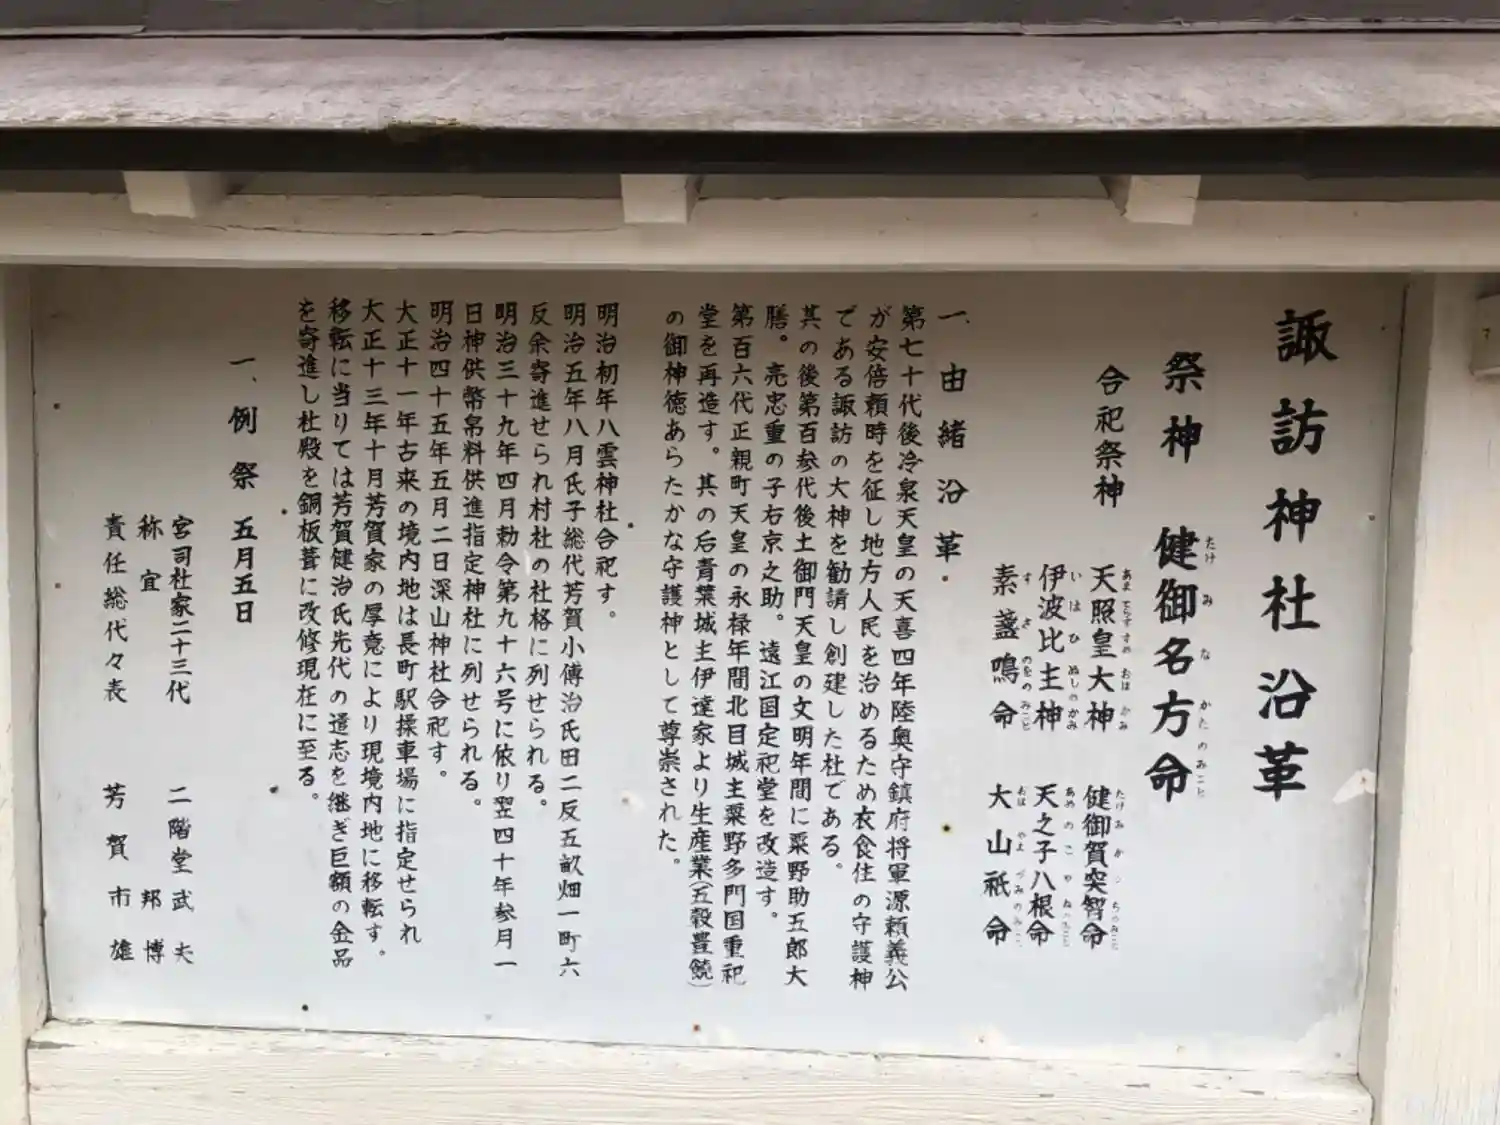 諏訪神社沿革
祭神　健御名方命
合祀祭神
天照皇大神　健御賀突智命
伊波比主神　天之子八根命
素盞鳴命　大山祇命
一、由緒沿革
第七十代後冷泉天皇の天喜四年陸奥守鎮府将軍源頼義公
が安倍頼時を征し地方人民を治めるため衣食住の守護神
である諏訪の大神を勧請し創建した社である。
其の後第百参代後土御門天皇の文明年間に粟野助五郎大
膳。亮忠重の子右京之助。遠江国定祀堂を改造す。
第百六代正親町天皇の永禄年間北目城主粟野多門国重祀
堂を再造す。其の后青葉城主伊達家より生産業(五穀豊饒)
の御神徳あらたかな守護神として尊崇された。
明治初年八雲神社合祀す。
明治五年八月氏子総代芳賀小傳治氏田二反五畝畑一町六
反余寄進せられ村社の社格に列せられる。
明治三十九年四月勅令第九十六号に依り翌四十年参月一
日神供幣帛料供進指定神社に列せられる。
明治四十五年五月二日深山神社合祀す。
大正十一年古来の境内地は長町駅操車場に指定せられ
大正十三年十月芳賀家の厚意により現境内地に移転す。
移転に当りては芳賀健治氏先代の遺志を継ぎ巨額の金品
を寄進し社殿を銅板葺に改修現在に至る。
一、例祭　五月五日
宮司社家二十三代　二階堂武夫
称宜　邦博
責任総代々表　芳賀市雄